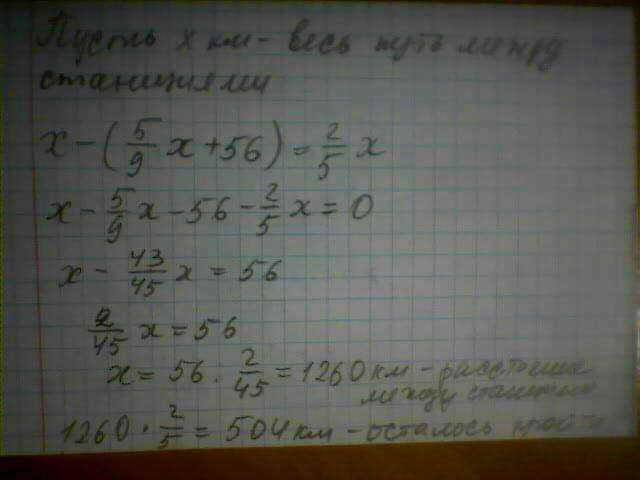 Пусть x км - весь путь между
станциями
x - (5/9 x + 56) = 2/5 x
x - 5/9 x - 56 - 2/5 x = 0
x - 43/45 x = 56
2/45 x = 56
x = 56 . 2/45 = 1260 км - расстояние
между станциями
1260 . 2/5 = 504 км - осталось пройти